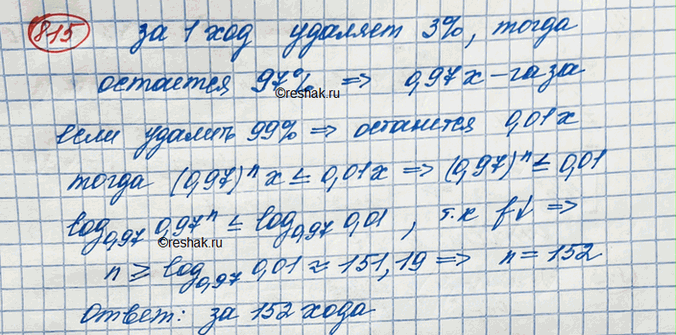 815 за 1 ход удаляет 3%, тогда
остается 97% ⇒ 0,97x - газа
©reshak.ru
если удалить 99% ⇒ останется 0,01x
тогда (0,97)ⁿ x ≤ 0,01x ⇒ (0,97)ⁿ ≤ 0,01
log₀,₉₇ 0,97ⁿ ≤ log₀,₉₇ 0,01, т.к f↓ ⇒
©reshak.ru
n ≥ log₀,₉₇ 0,01 ≈ 151,19 ⇒ n = 152
Ответ: за 152 хода